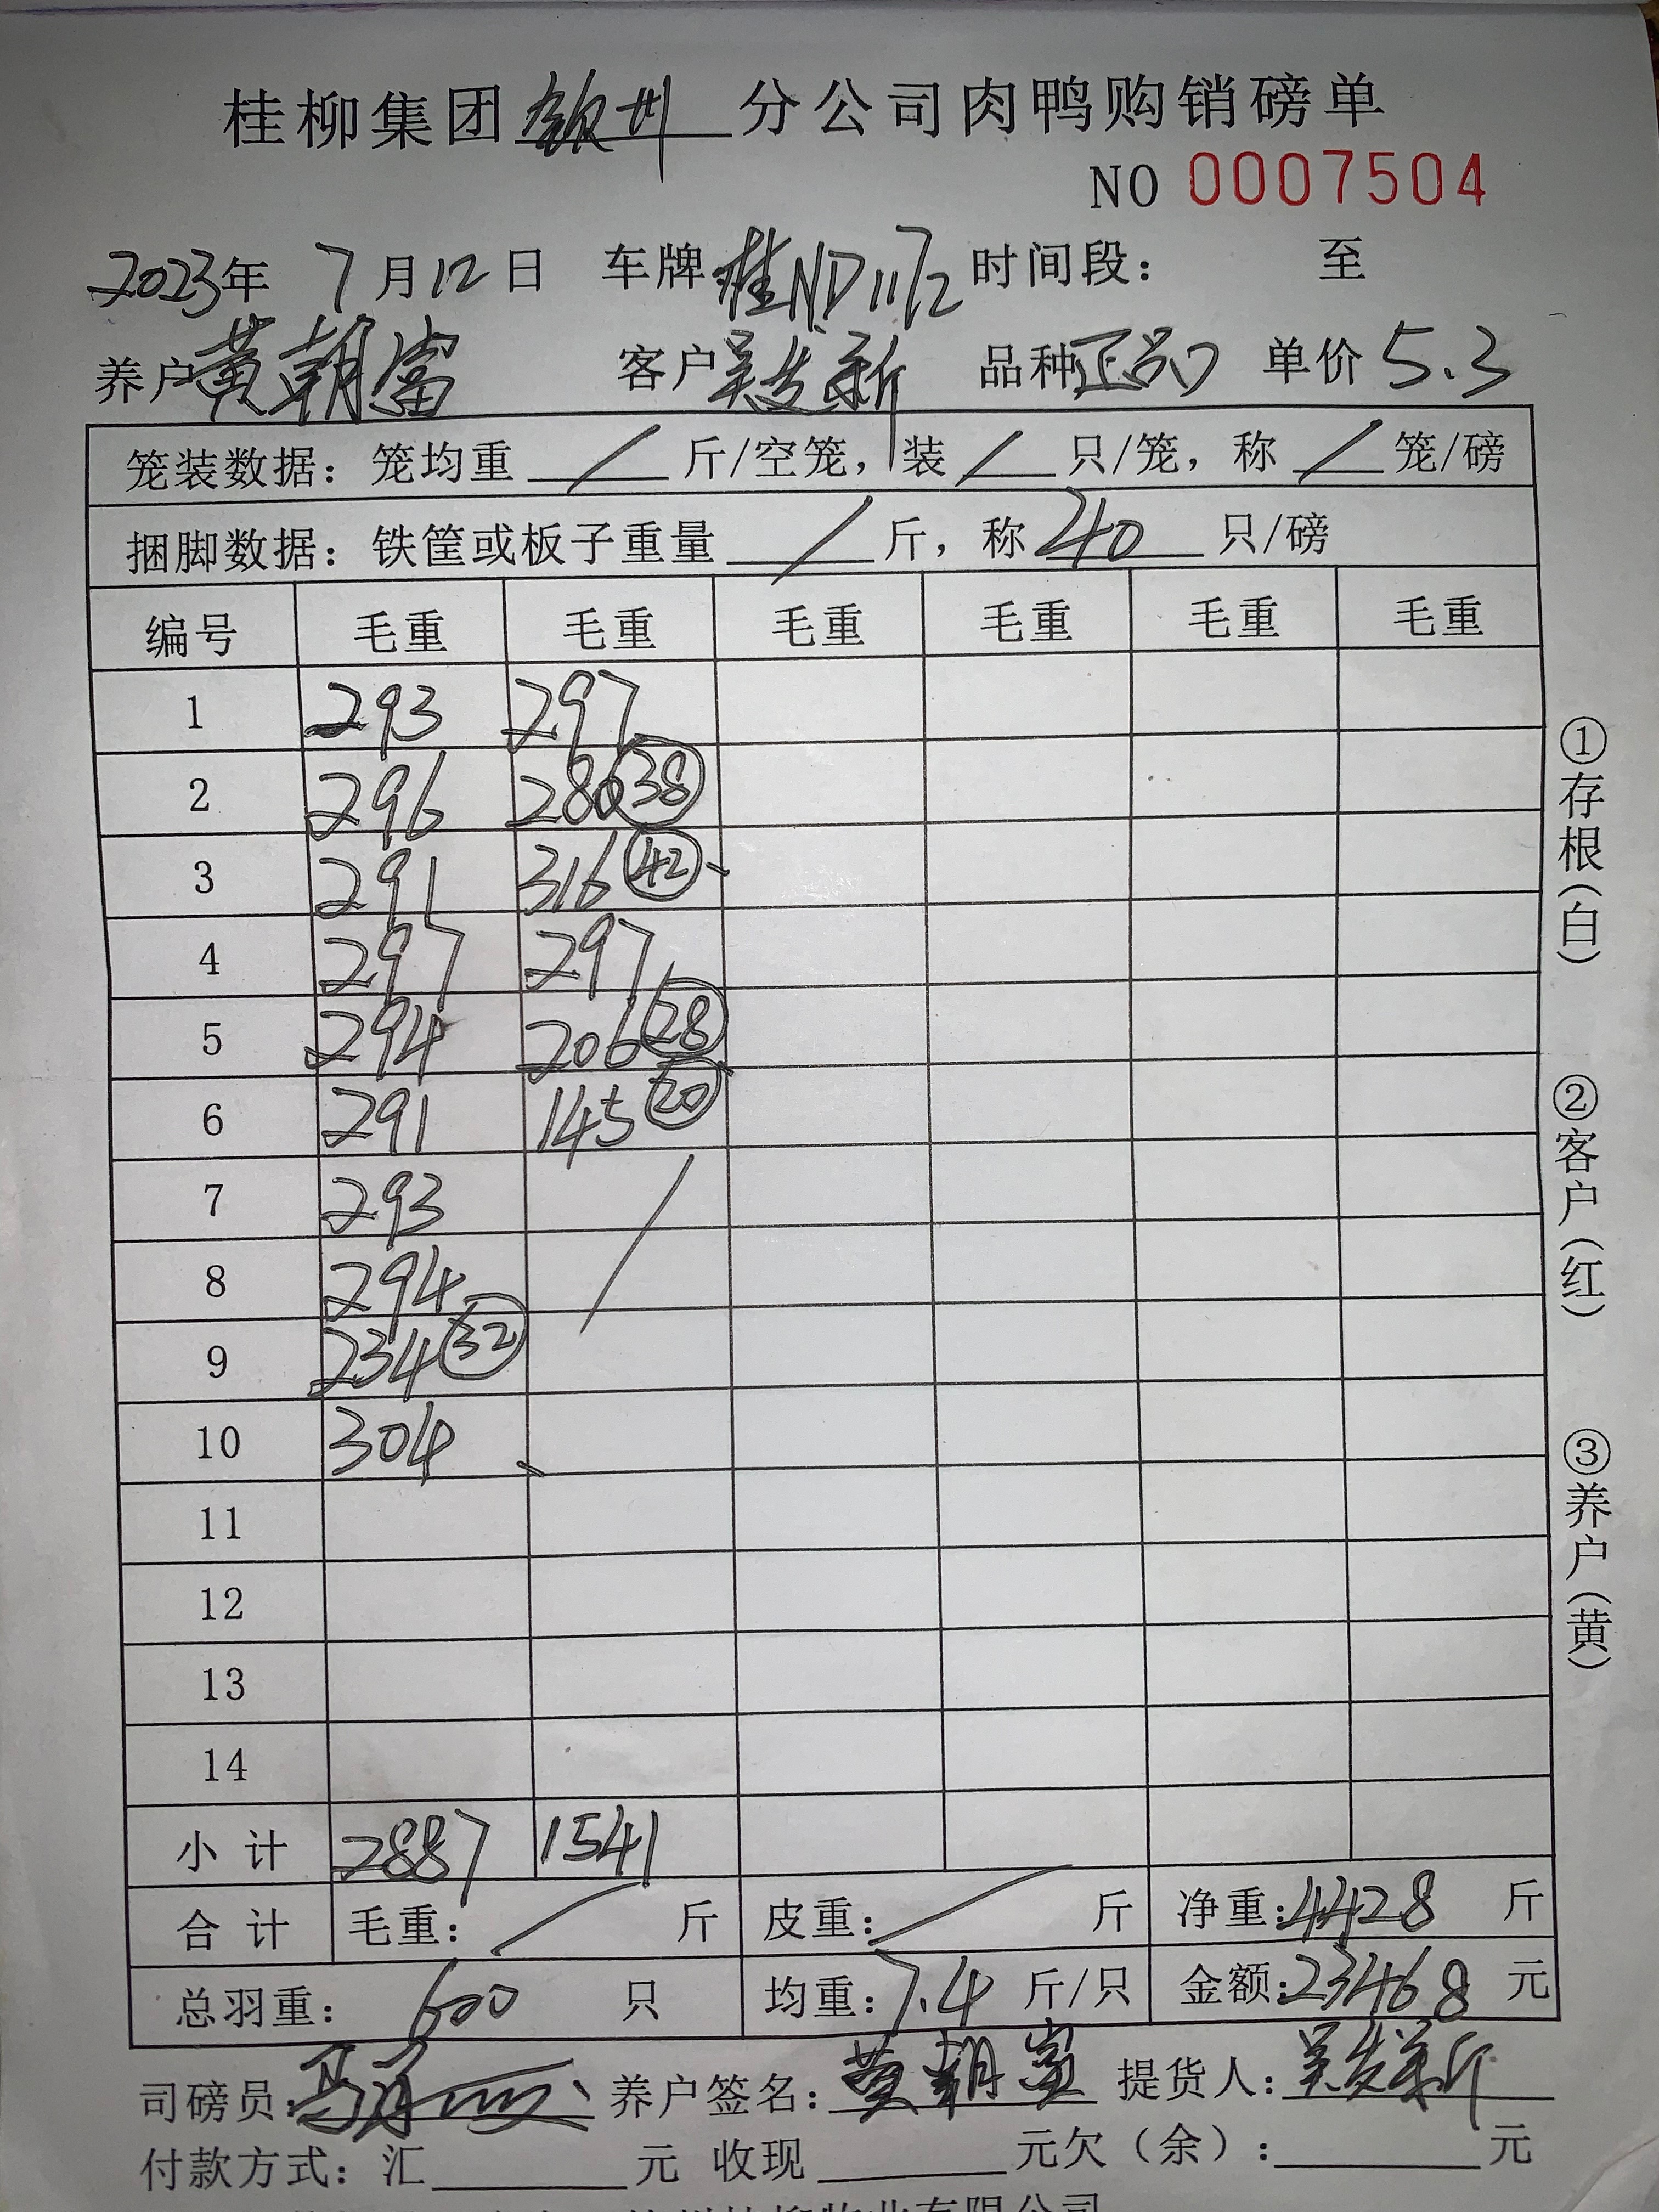 桂柳集团钦州分公司肉鸭购销磅单
NO 0007504
2023年 7月12日 车牌桂ND1172 时间段: 至
养户黄朝富 客户吴发新 品种正品 单价5.3
笼装数据:笼均重 / 斤/空笼,装 / 只/笼,称 / 笼/磅
捆脚数据:铁筐或板子重量 / 斤,称 40 只/磅
编号 毛重 毛重 毛重 毛重 毛重 毛重
1 293 297
2 296 280 38
3 291 316 42
4 297 297
5 294 206 28
6 291 145 20
7 293 /
8 294
9 234 32
10 304
11
12
13
14
小计 2887 1541
合计 毛重: / 斤 皮重: / 斤 净重:4428 斤
总羽重: 600 只 均重:7.4 斤/只 金额:23468 元
司磅员: 养户签名:黄朝富 提货人:吴发新
付款方式:汇 元 收现 元欠(余): 元
①存根(白)
②客户(红)
③养户(黄)